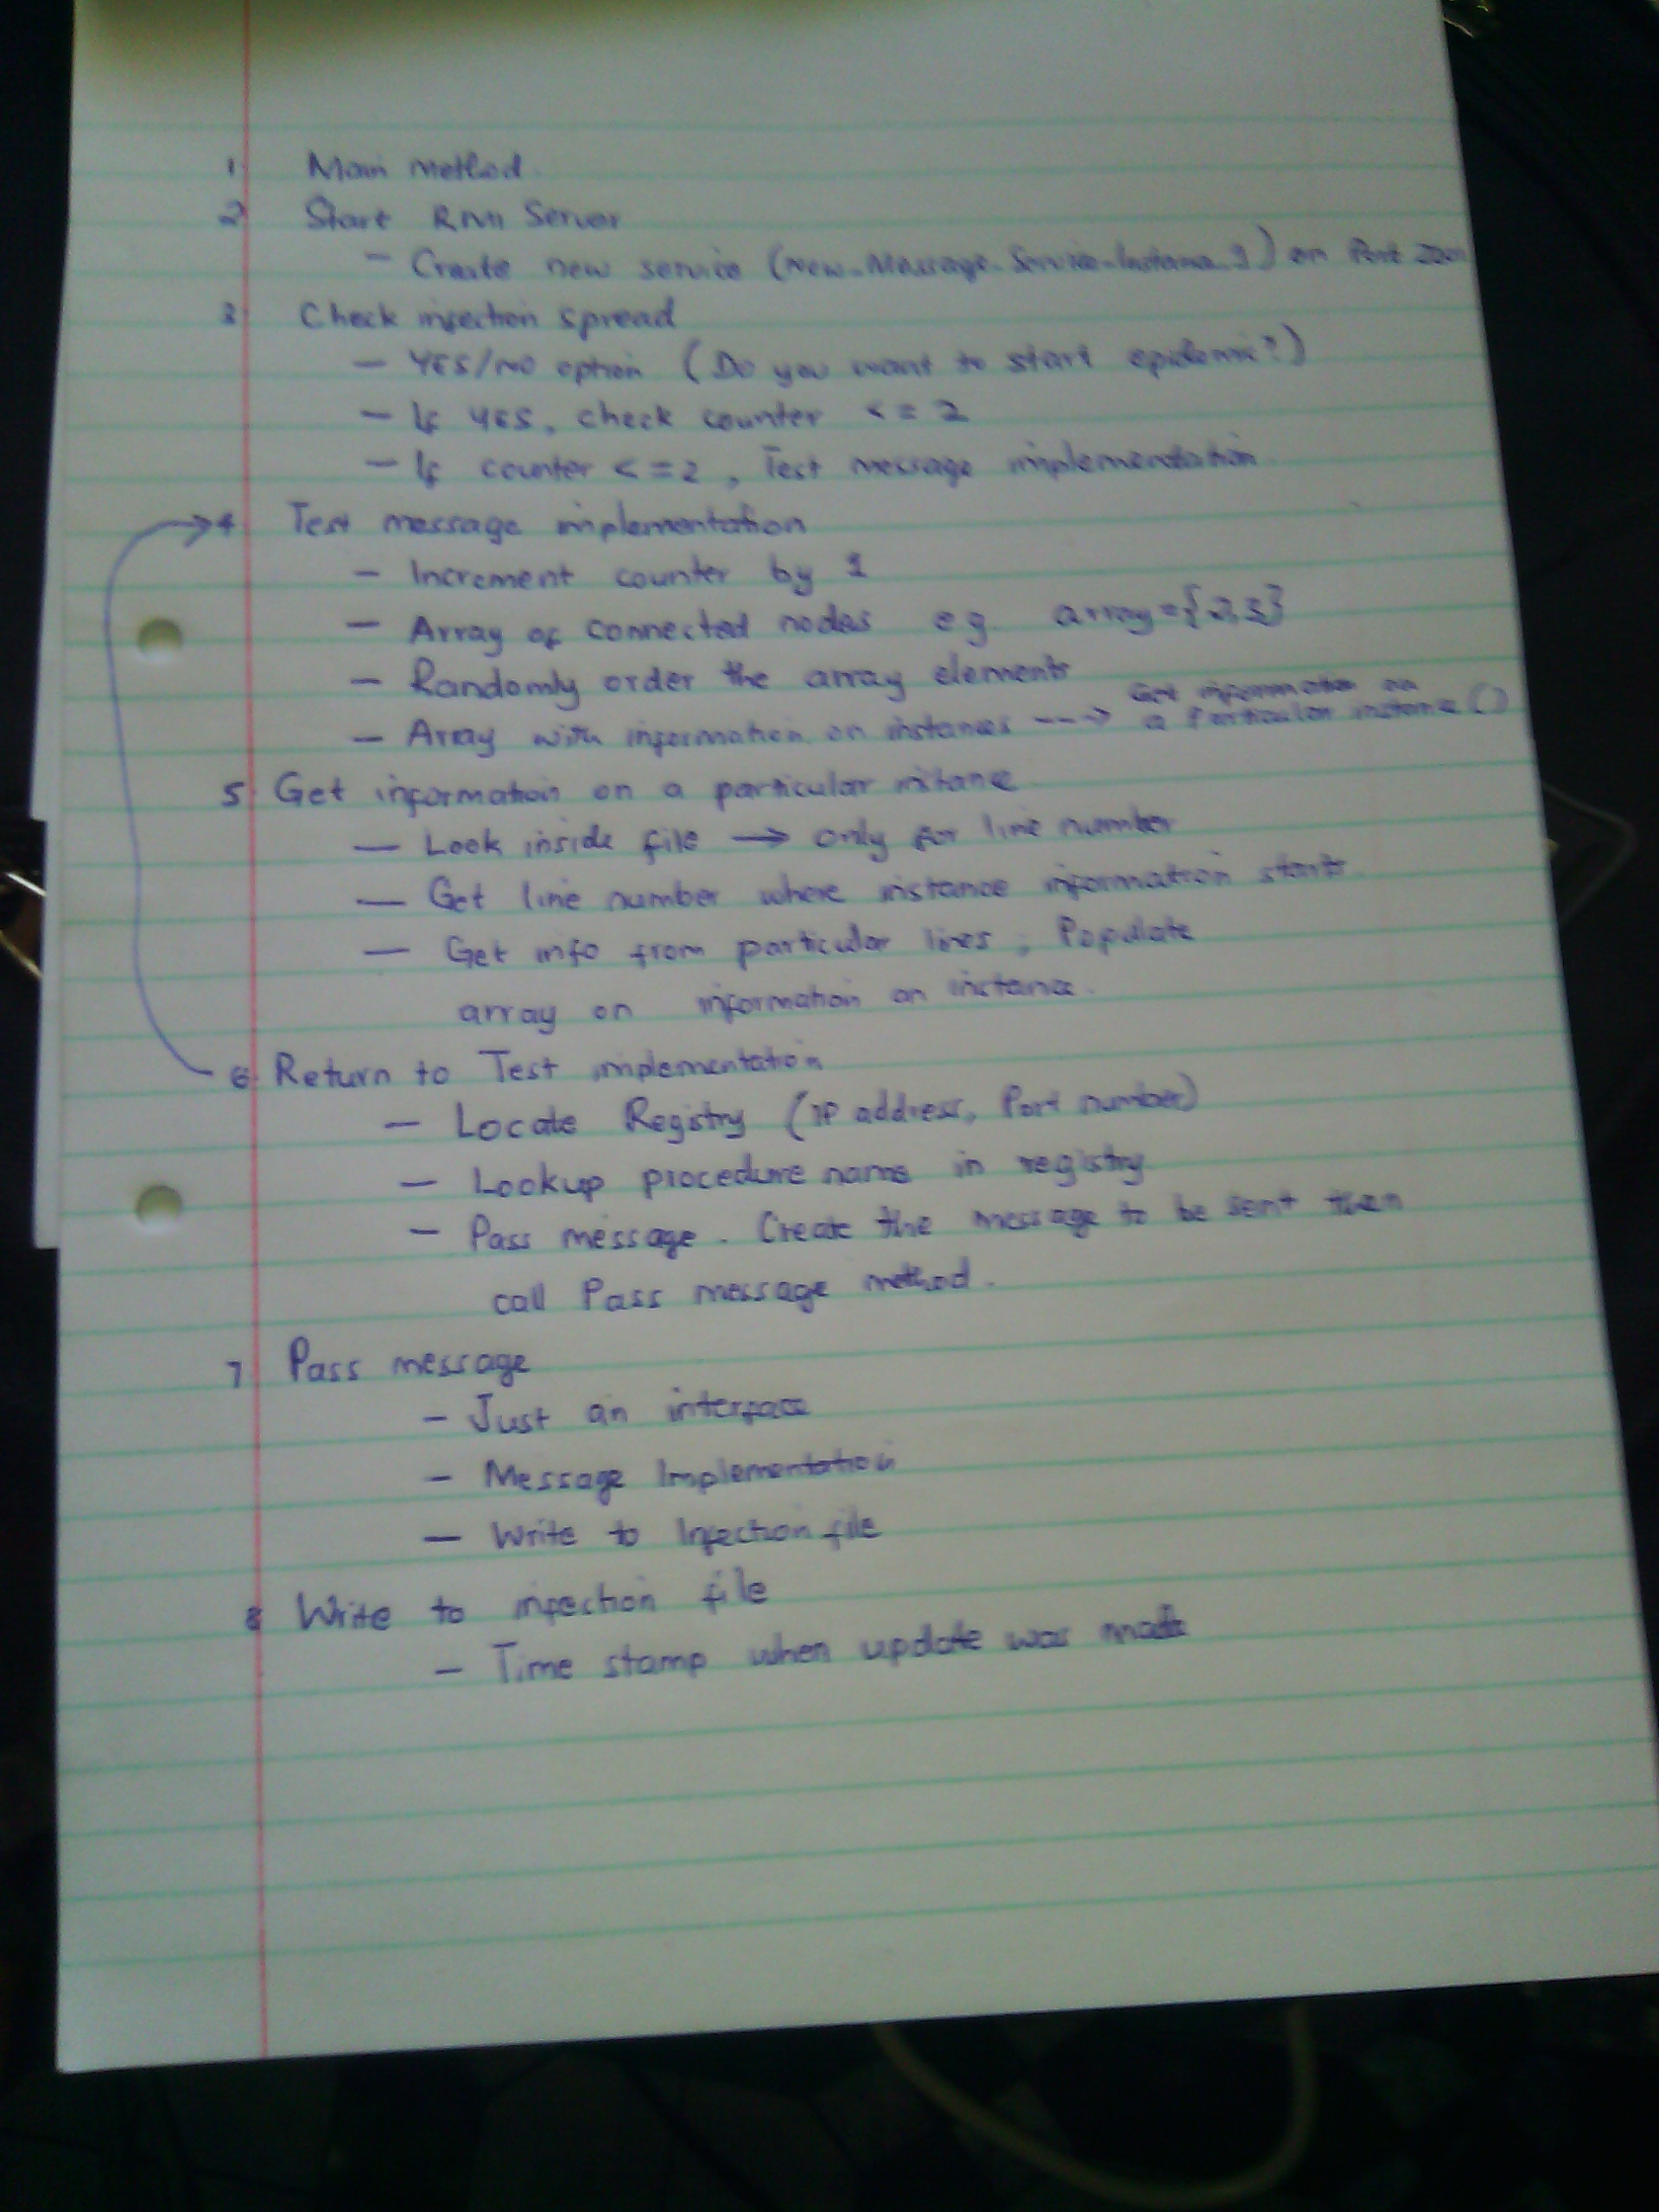 1 Main method.
2 Start RMI Server
— Create new service (New_Message_Service_Instance_1) on Port
3 Check infection spread
— YES/NO option (Do you want to start epidemic?)
— If YES, check counter <= 2
— If counter <= 2, Test message implementation
4 Test message implementation
— Increment counter by 1
— Array of connected nodes eg. array={2,3}
— Randomly order the array elements
— Array with information on instances ---> Get information on a Particular instance ()
5 Get information on a particular instance
— Look inside file → only for line number
— Get line number where instance information starts.
— Get info from particular lines, Populate
array on information on instance.
6 Return to Test implementation
— Locate Registry (IP address, Port number)
— Lookup procedure name in registry
— Pass message. Create the message to be sent then
call Pass message method.
7 Pass message
— Just an interface
— Message Implementation
— Write to Infection file
8 Write to infection file
— Time stamp when update was made